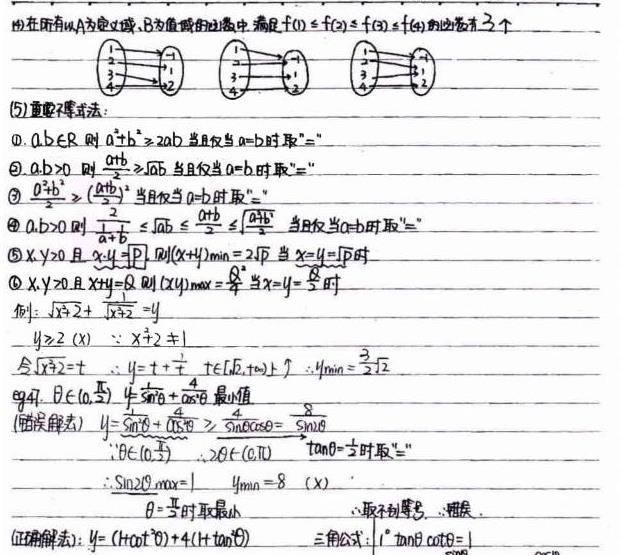 (4)在所有以A为定义域、B为值域的函数中 满足f(1)≤f(2)≤f(3)≤f(4)的函数有3个
1 2 3 4 -1 1 2
1 2 3 4 -1 1 2
1 2 3 4 -1 1 2
(5)重要不等式法:
①. a.b∈R 则 a²+b²≥2ab 当且仅当a=b时取"="
②. a.b>0 则 (a+b)/2≥√ab 当且仅当a=b时取"="
③ (a²+b²)/2≥((a+b)/2)² 当且仅当a=b时取"="
④ a.b>0 则 2/(1/a+1/b)≤√ab≤(a+b)/2≤√((a²+b²)/2) 当且仅当a=b时取"="
⑤ x.y>0 且 x·y=P 则(x+y)min=2√P 当 x=y=√P时
⑥ x.y>0且x+y=Q 则(xy)max=Q²/4 当x=y=Q/2时
例: √(x²+2)+1/√(x²+2)=y
y≥2 (×) ∵ x²+2≠1
令√(x²+2)=t ∴y=t+1/t t∈[√2,+∞)上↑ ∴ymin=3/2√2
eg47. θ∈(0,π/2) y=1/sin²θ+4/cos²θ 最小值
(错误解法) y=1/sin²θ+4/cos²θ≥4/(sinθcosθ)=8/sin2θ
∵θ∈(0,π/2) ∴2θ∈(0,π) tanθ=1/2时取"="
∴sin2θmax=1 ymin=8 (×)
θ=π/2时取最小 ∴取不到等号 ∴错误.
(正确解法): y=(1+cot²θ)+4(1+tan²θ) 三角公式: 1° tanθcotθ=1